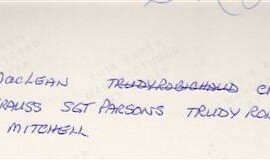 MACLEAN TRUDY ROBICHAUD C
RAUSS SGT PARSONS TRUDY RO
MITCHELL